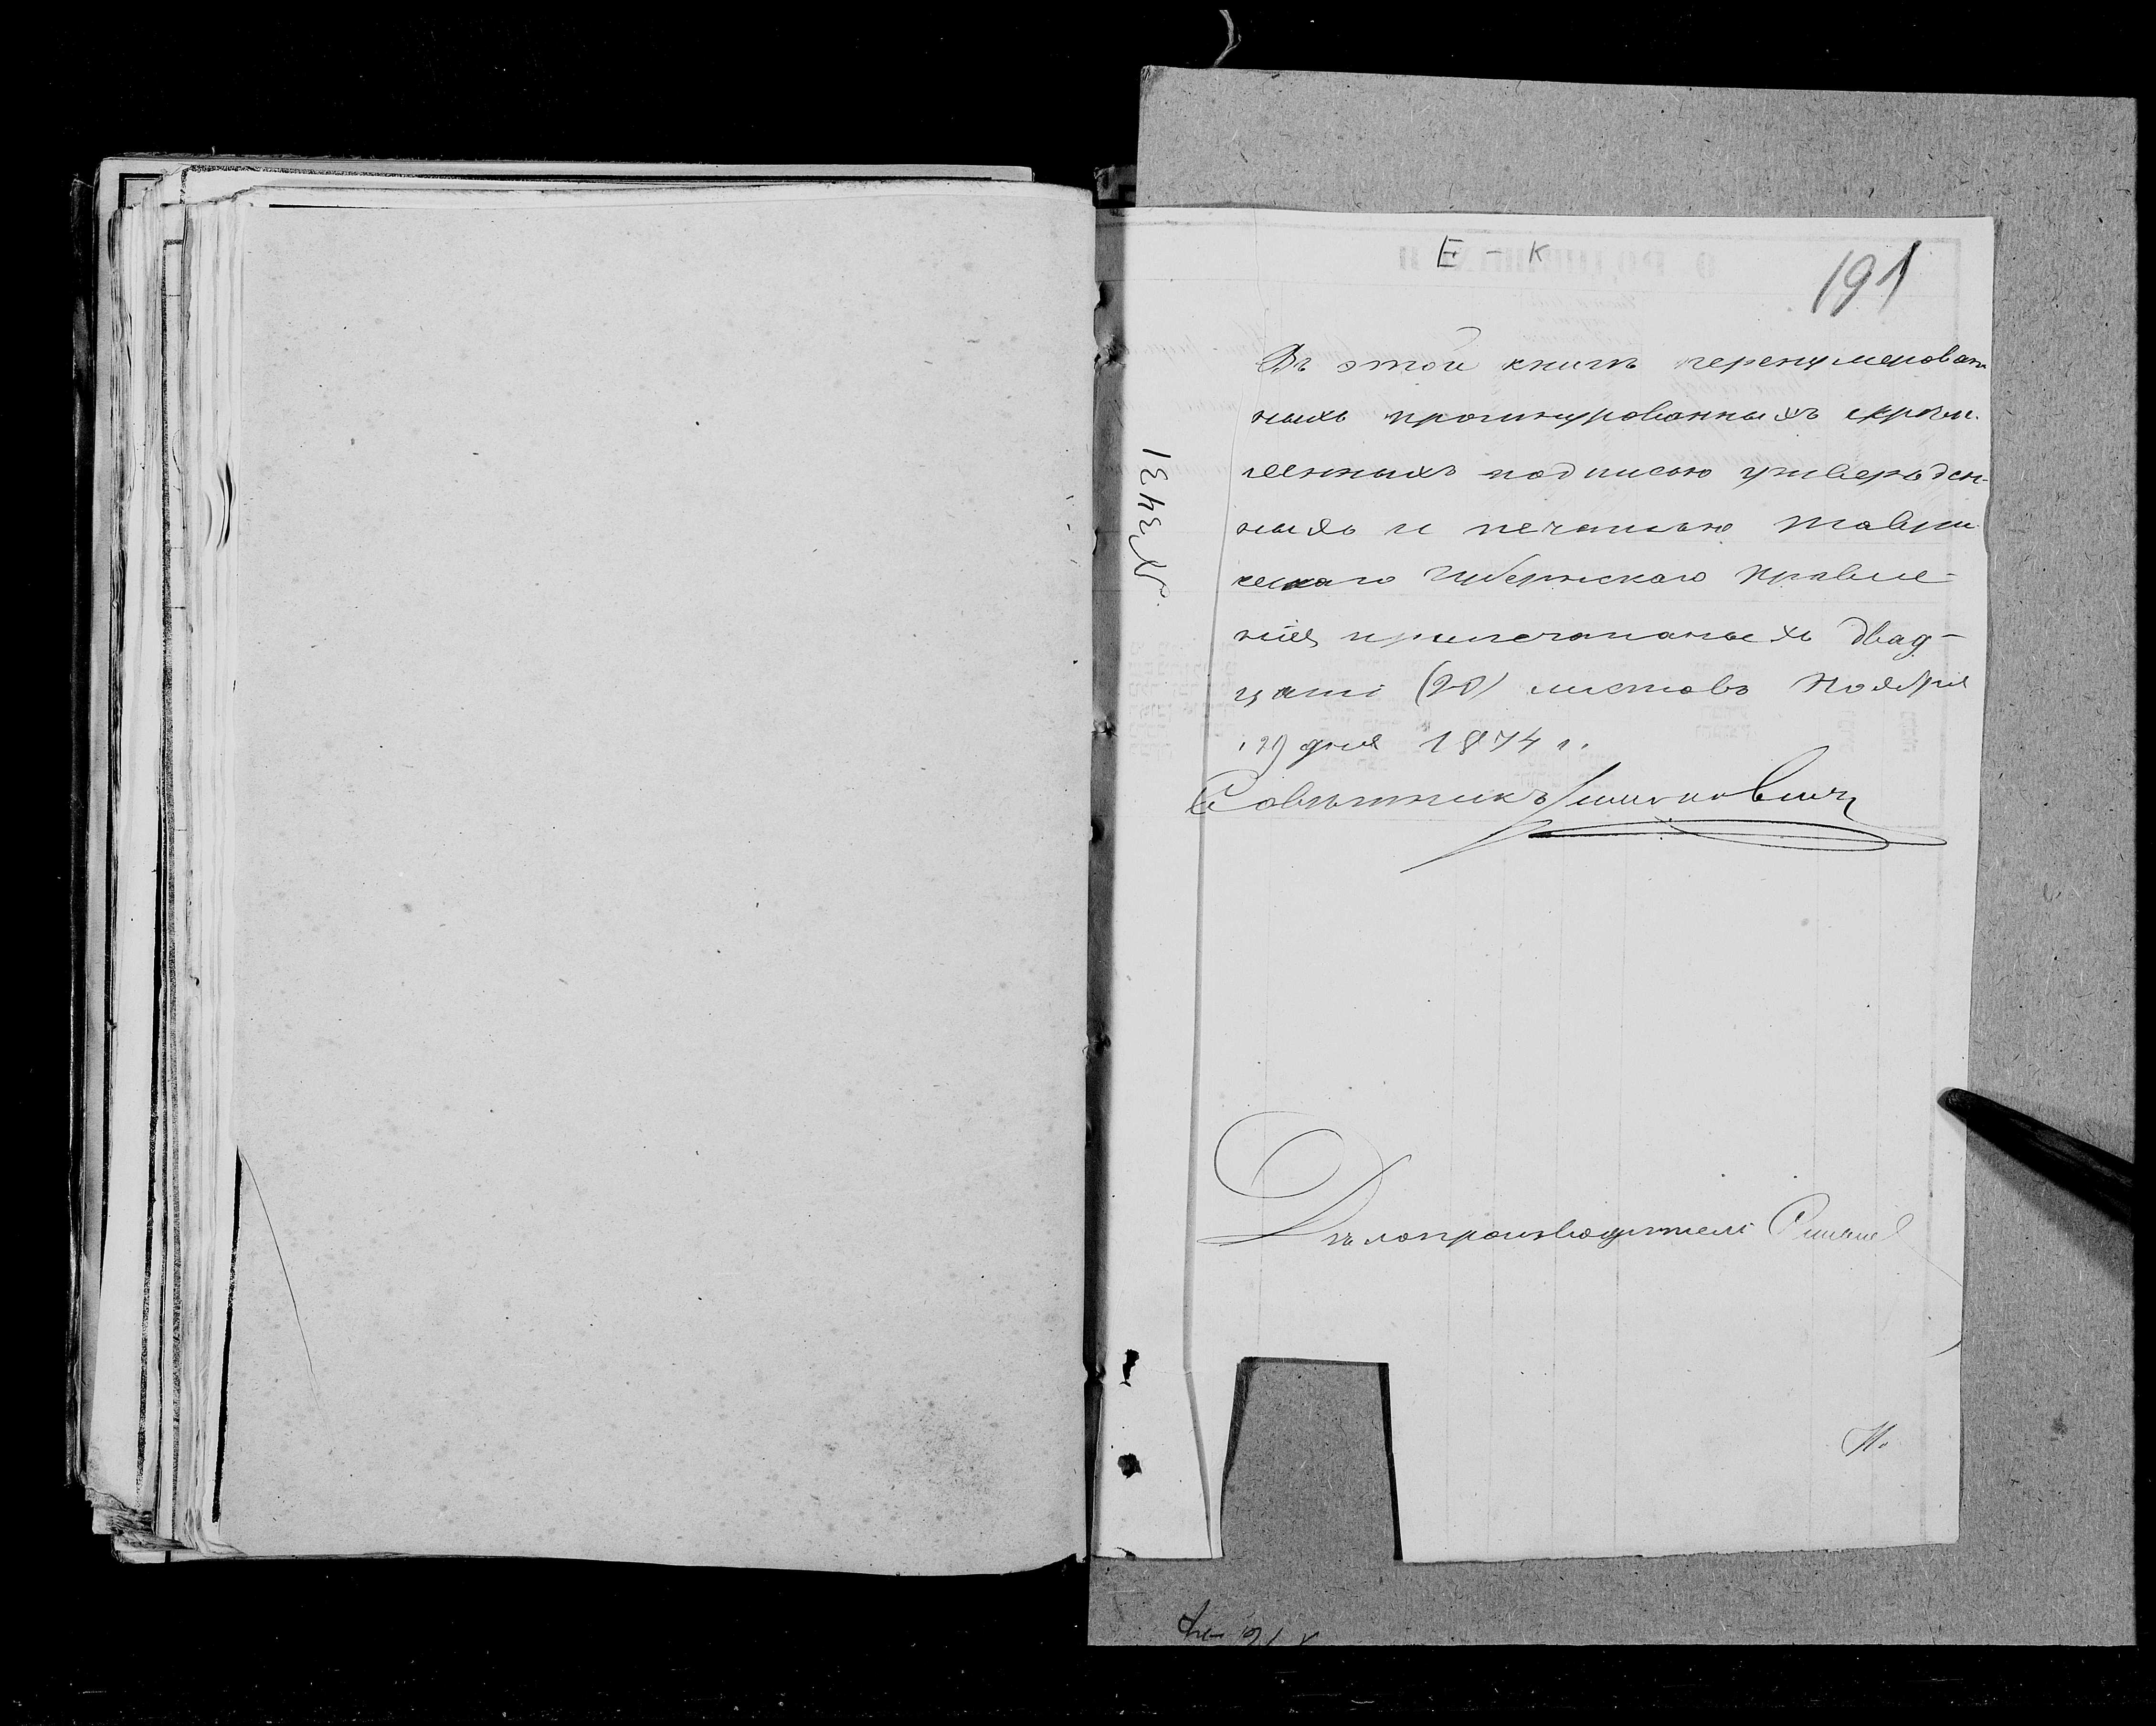 Е - К
191
Въ этой книгѣ перенумерован
ныхъ прошнурованныхъ скрѣп
ленныхъ подписью утвержден-
ныхъ и печатью Таври
ческаго Губернскаго Правле-
нія припечатаныхъ двад-
цати (20) листовъ Ноября
29 дня 1874 г.
Совѣтникъ
Дѣлопроизводитель
№ 3431